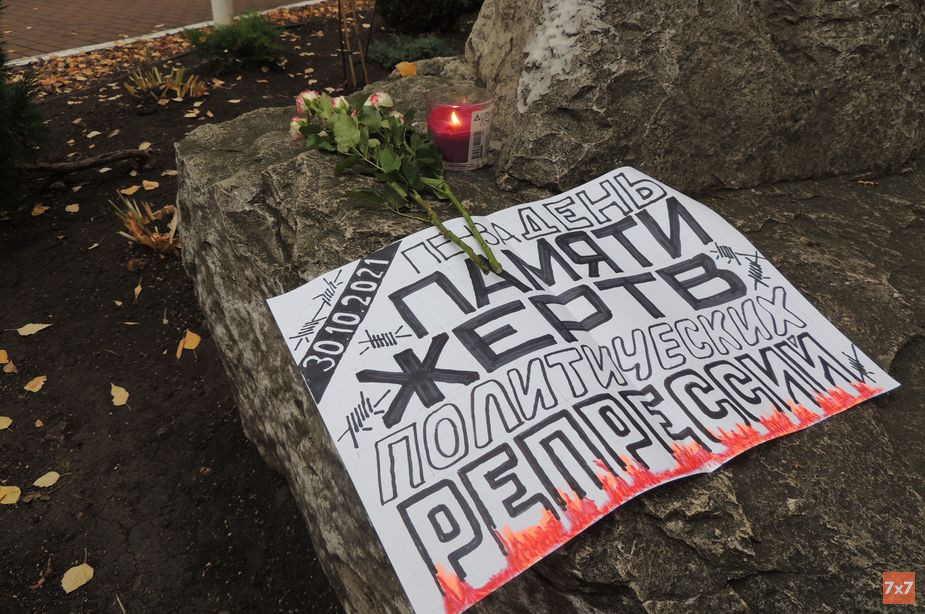 30.10.2021
ПЕНЗА ДЕНЬ
ПАМЯТИ
ЖЕРТВ
ПОЛИТИЧЕСКИХ
РЕПРЕССИЙ
7x7